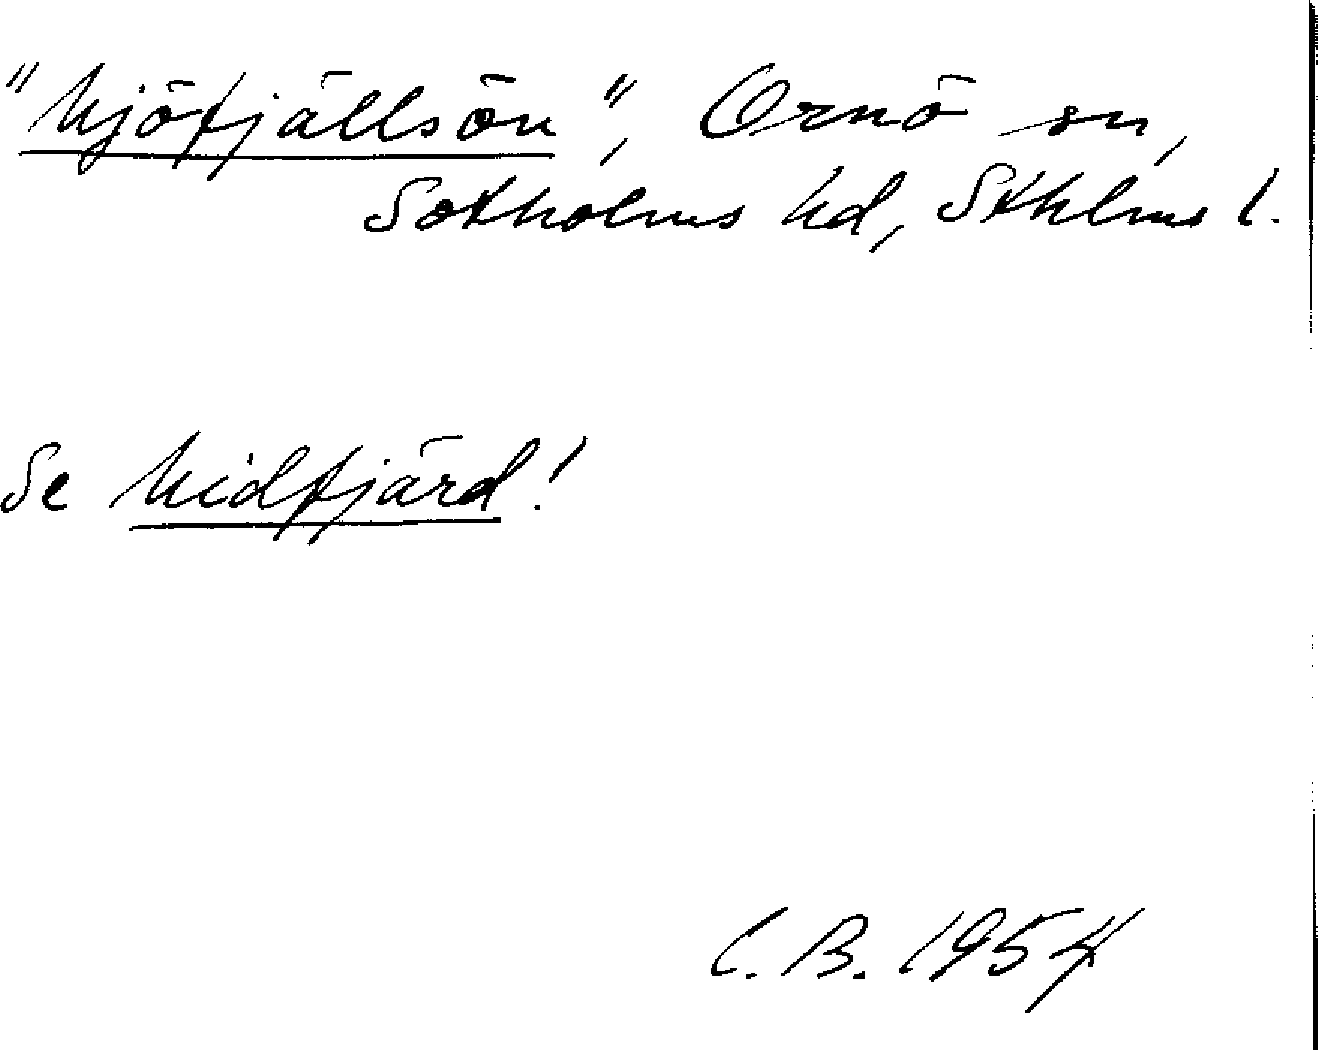 "Mjöfjällsön", Ornö sn,
Sotholms hd, Sthlms l.
Se Midfjärd!
C.B. 1954